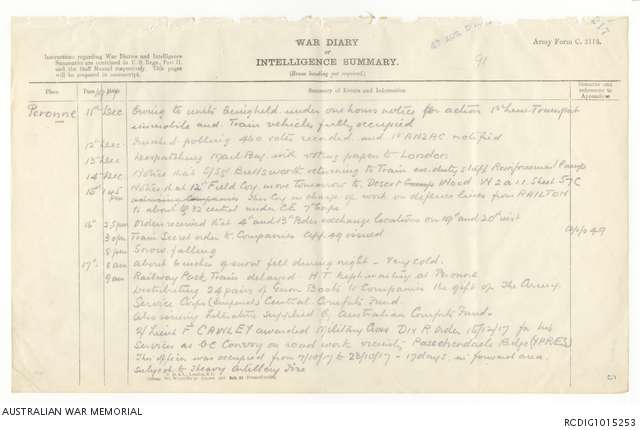 WAR DIARY
or
INTELLIGENCE SUMMARY.
(Erase heading not required.)
Army Form C. 2118.
Instructions regarding War Diaries and Intelligence
Summaries are contained in F. S. Regs., Part II.
and the Staff Manual respectively. Title pages
will be prepared in manuscript.
91
Place Date Hour Summary of Events and Information Remarks and references to Appendices
Peronne 11th Dec Owing to units being held under one hours notice for action 1st Line Transport
immobile and Train vehicles fully occupied
12th Dec Finished polling 460 votes recorded and 1st ANZAC notified
13 Dec Despatching Mail Bag with voting papers to London
14 Dec Notice that S/Sgt Butlsworth returning to Train ex duty staff Reinforcement Camp
15th Notice that 12th Field Coy. move tomorrow to Desert Wood Sheet 57C
Companies This Coy in charge of work on defence lines from RAILTON
to about under C.E. 7th Corps
16th 2.5pm Orders received that 4th and 13th Bdes exchange locations on 19th and 20th inst
3 pm Train Secret order to Companies App. 49 issued App 49
8 pm Snow falling
17th 8am About 6 inches of snow fell during night - Very cold.
9am Railway Pack Train delayed - H.T. kept waiting at Peronne
Distributing 24 pairs of Gum Boots to Companies the gift of the Army
Service Corps (Empire) Central Comforts Fund.
Also issuing Literature supplied by Australian Comforts Fund.
2/Lieut F. CAWLEY awarded Military Cross Div R Order 15/12/17 for his
Services as OC Convoy on road work vicinity Passchendaele Ridge (YPRES)
This officer was occupied from 7/10/17 to 23/10/17 - 17 days, in forward area
subject to heavy Artillery Fire
AUSTRALIAN WAR MEMORIAL
RCDIG1015253